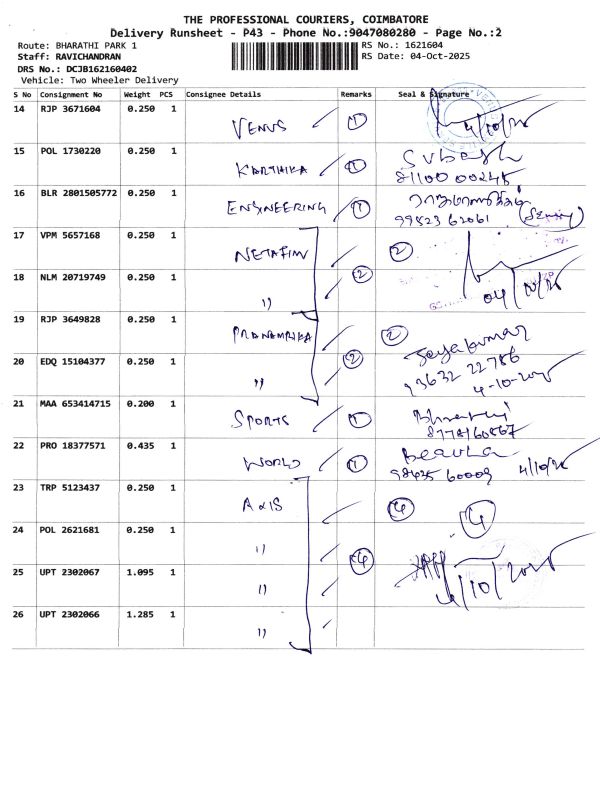 THE PROFESSIONAL COURIERS, COIMBATORE
Delivery Runsheet - P43 - Phone No.:9047080280 - Page No.:2
Route: BHARATHI PARK 1
RS No.: 1621604
Staff: RAVICHANDRAN
RS Date: 04-Oct-2025
DRS No.: DCJB162160402
Vehicle: Two Wheeler Delivery
S No Consignment No Weight PCS Consignee Details Remarks Seal & Signature
14 RJP 3671604 0.250 1 VENUS 1
15 POL 1730220 0.250 1 KARTHIKA 1 Subash
16 BLR 2801505772 0.250 1 ENGINEERING 1
99523 62061
17 VPM 5657168 0.250 1 NETAFIM 2
18 NLM 20719749 0.250 1 " 2
19 RJP 3649828 0.250 1 2
Jayakumar
20 EDQ 15104377 0.250 1 " 2
93632 22786
4-10-2025
21 MAA 653414715 0.200 1 SPORTS 1
8778160867
22 PRO 18377571 0.435 1 WORLD 1
98435 60009 4/10/25
23 TRP 5123437 0.250 1 AXIS 4 4
24 POL 2621681 0.250 1 " 4
25 UPT 2302067 1.095 1 " 4/10/2025
26 UPT 2302066 1.285 1 "